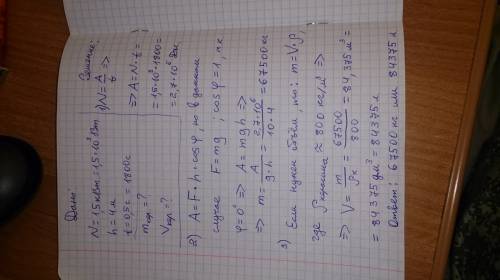 Дано:
N = 1,5 кВт = 1,5·10³ Вт
h = 4 м
t = 0,5 ч = 1800 с
m кер. = ?
V кер. = ?
Решение:
1) N = A/t =>
=> A = N·t =
= 1,5·10³·1800 =
= 2,7·10⁶ Дж
2) A = F·h·cosφ, но в данном
случае F = mg ; cosφ = 1, т.к.
φ = 0° => A = mgh =>
=> m = A/(g·h) = 2,7·10⁶/(10·4) = 67500 кг
3) Если нужен объём, то: m = V·ρ,
где ρ керосина ≈ 800 кг/м³ =>
=> V = m/ρк = 67500/800 = 84,375 м³ =
= 84375 дм³ = 84375 л
Ответ: 67500 кг или 84375 л